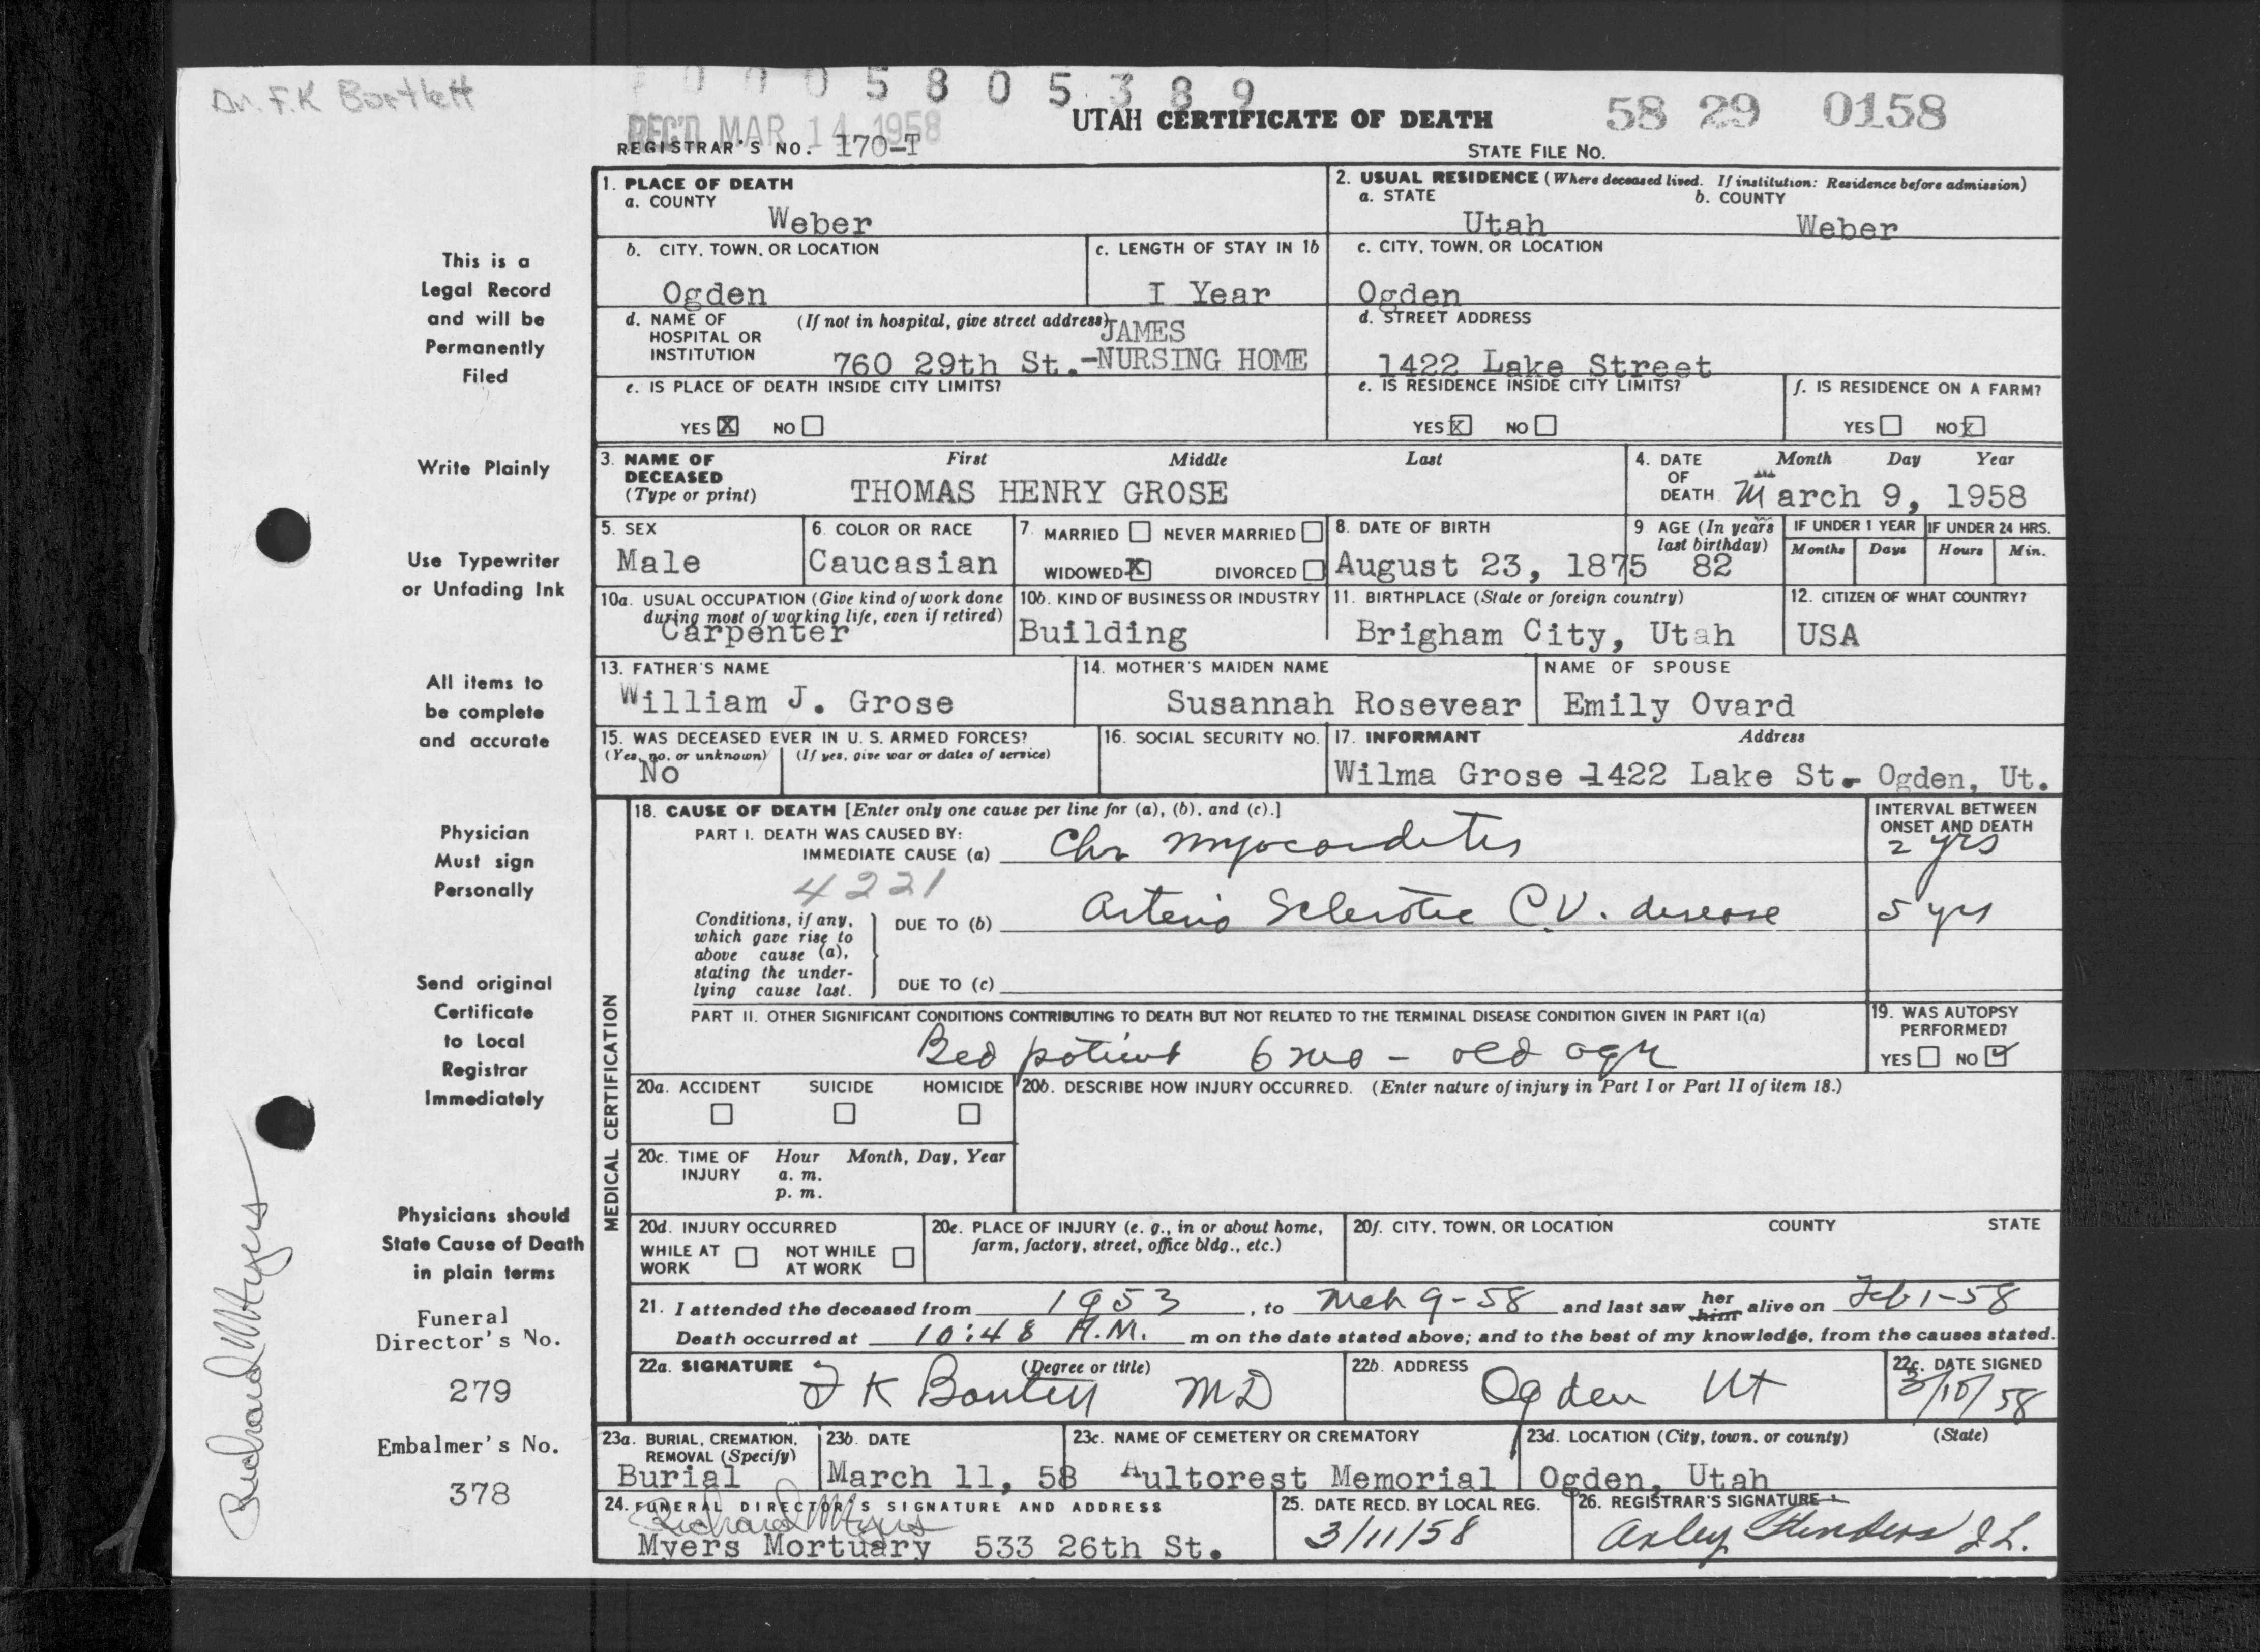 Dr. F.K Bartlett
0005805389
REC'D MAR 14 1958
UTAH CERTIFICATE OF DEATH
58 29 0158
REGISTRAR'S NO. 170-T
STATE FILE NO.
1. PLACE OF DEATH
a. COUNTY
Weber
2. USUAL RESIDENCE (Where deceased lived. If institution: Residence before admission)
a. STATE
Utah
b. COUNTY
Weber
b. CITY, TOWN, OR LOCATION
Ogden
c. LENGTH OF STAY IN 1b
I Year
c. CITY, TOWN, OR LOCATION
Ogden
d. NAME OF HOSPITAL OR INSTITUTION
(If not in hospital, give street address)
JAMES
760 29th St.-NURSING HOME
d. STREET ADDRESS
1422 Lake Street
e. IS PLACE OF DEATH INSIDE CITY LIMITS?
YES X NO
e. IS RESIDENCE INSIDE CITY LIMITS?
YES X NO
f. IS RESIDENCE ON A FARM?
YES NO X
3. NAME OF DECEASED (Type or print)
First Middle Last
THOMAS HENRY GROSE
4. DATE OF DEATH
Month Day Year
March 9, 1958
5. SEX
Male
6. COLOR OR RACE
Caucasian
7. MARRIED NEVER MARRIED
WIDOWED X DIVORCED
8. DATE OF BIRTH
August 23, 1875
9 AGE (In years last birthday)
82
IF UNDER 1 YEAR
Months Days
IF UNDER 24 HRS.
Hours Min.
10a. USUAL OCCUPATION (Give kind of work done during most of working life, even if retired)
Carpenter
10b. KIND OF BUSINESS OR INDUSTRY
Building
11. BIRTHPLACE (State or foreign country)
Brigham City, Utah
12. CITIZEN OF WHAT COUNTRY?
USA
13. FATHER'S NAME
William J. Grose
14. MOTHER'S MAIDEN NAME
Susannah Rosevear
NAME OF SPOUSE
Emily Ovard
15. WAS DECEASED EVER IN U. S. ARMED FORCES?
(Yes, no, or unknown) (If yes, give war or dates of service)
No
16. SOCIAL SECURITY NO.
17. INFORMANT Address
Wilma Grose -1422 Lake St.- Ogden, Ut.
MEDICAL CERTIFICATION
18. CAUSE OF DEATH [Enter only one cause per line for (a), (b), and (c).]
PART I. DEATH WAS CAUSED BY:
IMMEDIATE CAUSE (a) Chr myocarditis
INTERVAL BETWEEN ONSET AND DEATH
2 yrs
4221
Conditions, if any, which gave rise to above cause (a), stating the underlying cause last.
DUE TO (b) Arterio Sclerotic C.V. disease
5 yrs
DUE TO (c)
PART II. OTHER SIGNIFICANT CONDITIONS CONTRIBUTING TO DEATH BUT NOT RELATED TO THE TERMINAL DISEASE CONDITION GIVEN IN PART I(a)
Bed patient 6 mo - old age
19. WAS AUTOPSY PERFORMED?
YES NO
20a. ACCIDENT SUICIDE HOMICIDE
20b. DESCRIBE HOW INJURY OCCURRED. (Enter nature of injury in Part I or Part II of item 18.)
20c. TIME OF INJURY
Hour Month, Day, Year
a. m.
p. m.
20d. INJURY OCCURRED
WHILE AT WORK NOT WHILE AT WORK
20e. PLACE OF INJURY (e. g., in or about home, farm, factory, street, office bldg., etc.)
20f. CITY, TOWN, OR LOCATION COUNTY STATE
21. I attended the deceased from 1953, to Mch 9-58 and last saw her him alive on Feb 1-58
Death occurred at 10:48 A.M. m on the date stated above; and to the best of my knowledge, from the causes stated.
22a. SIGNATURE (Degree or title)
F K Bartlett MD
22b. ADDRESS
Ogden Ut
22c. DATE SIGNED
3/10/58
23a. BURIAL, CREMATION, REMOVAL (Specify)
Burial
23b. DATE
March 11, 58
23c. NAME OF CEMETERY OR CREMATORY
Aultorest Memorial
23d. LOCATION (City, town, or county) (State)
Ogden, Utah
24. FUNERAL DIRECTOR'S SIGNATURE AND ADDRESS
Richard M Myers
Myers Mortuary 533 26th St.
25. DATE RECD. BY LOCAL REG.
3/11/58
26. REGISTRAR'S SIGNATURE
This is a
Legal Record
and will be
Permanently
Filed
Write Plainly
Use Typewriter
or Unfading Ink
All items to
be complete
and accurate
Physician
Must sign
Personally
Send original
Certificate
to Local
Registrar
Immediately
Physicians should
State Cause of Death
in plain terms
Funeral
Director's No.
279
Embalmer's No.
378
Richard M Myers